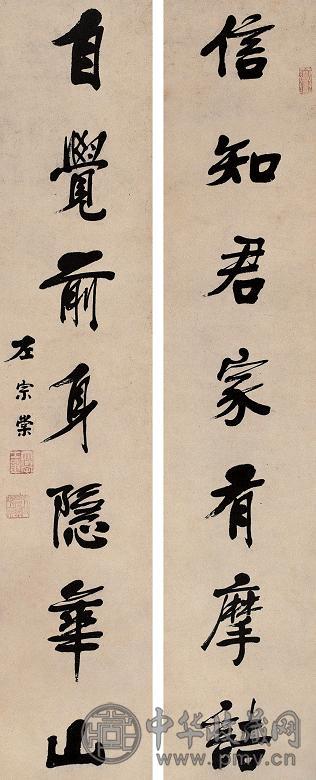 信知君家有摩詰
自覺前身隐華山
左宗棠
中华收藏网
www.pmv.cn